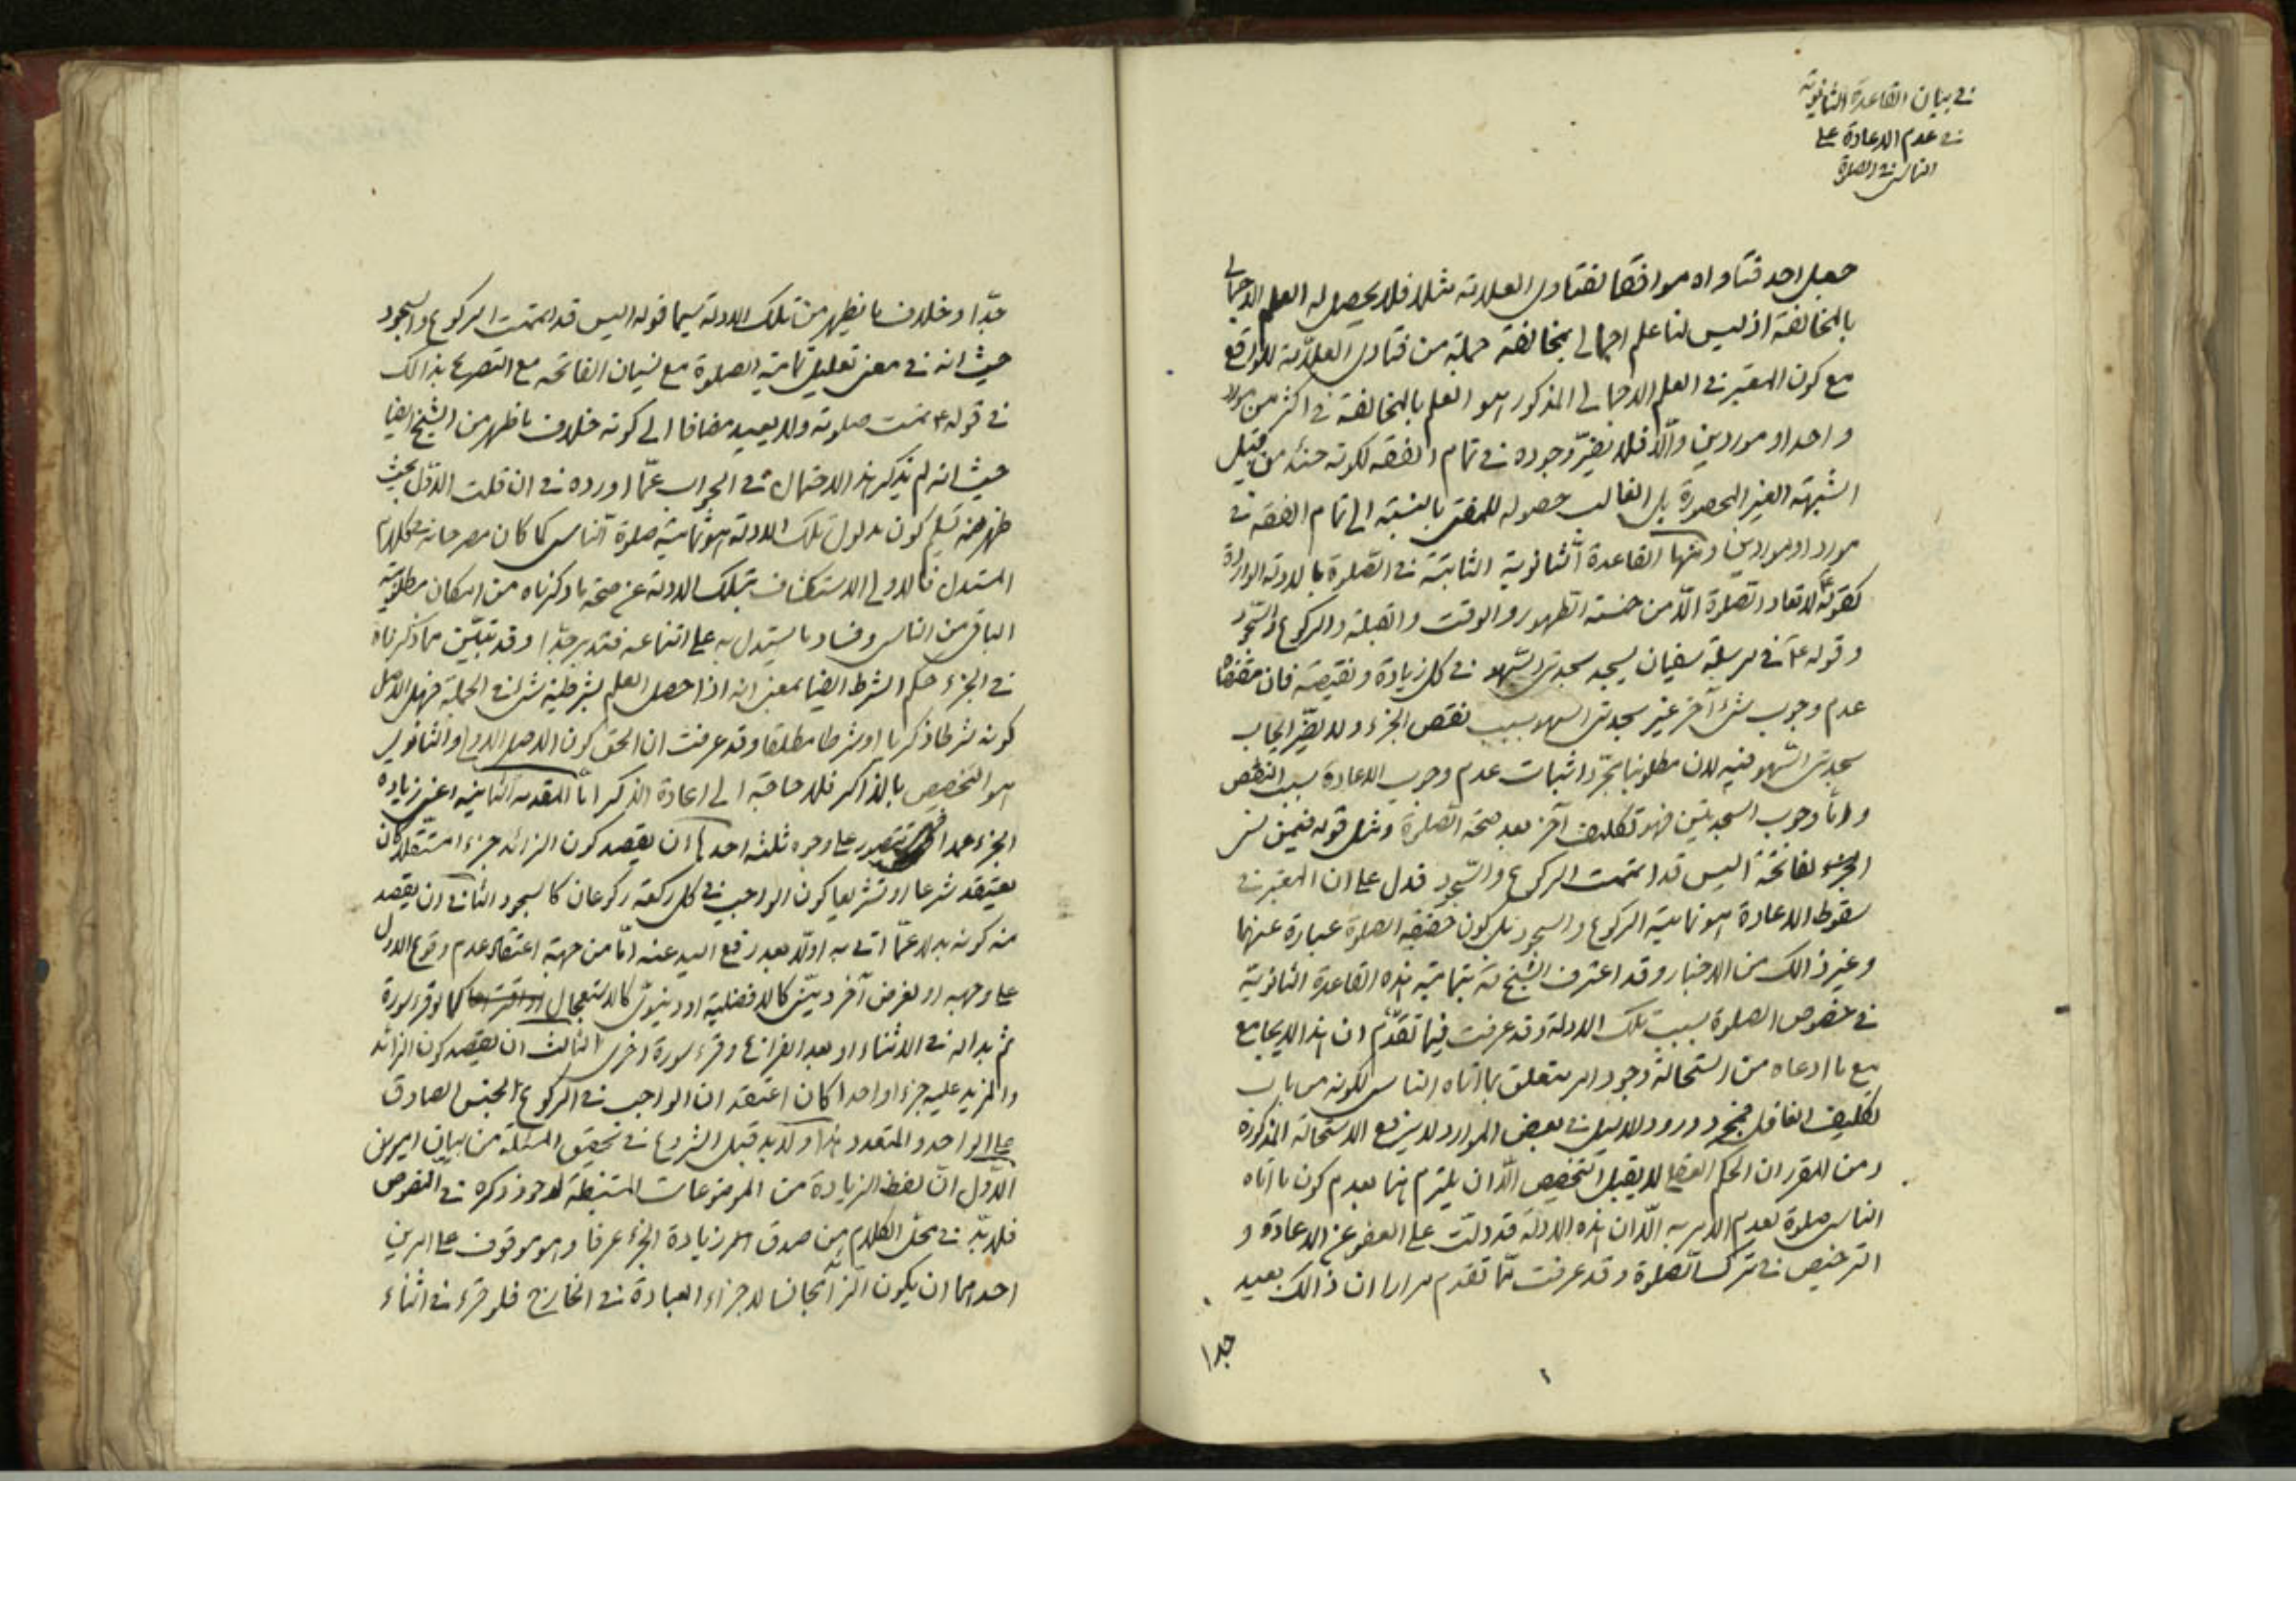 في بيان القاعدة الثانوية
في عدم الاعادة على
الناسي في الصلوة
جعل احد فتاواه موافقا لفتاوى العلامة مثلا فلا يحصل له العلم الاجمالي
بالمخالفة اذ ليس لنا علم اجمالي بمخالفة جملة من فتاوى العلامة للواقع
مع كون المعتبر في العلم الاجمالي المذكور هو العلم بالمخالفة في اكثر من
واحد او موردين والّا فلا يضرّ وجوده في تمام الفقه لكونه حينئذ من قبيل
الشبهة الغير المحصورة بل الغالب حصوله للمفتي بالنسبة الى تمام الفقه في
مورد او موردين ومنها القاعدة الثانوية الثابتة في الصلوة بالادلة الواردة
كقوله لا تعاد الصلوة الّا من خمسة الطهور والوقت والقبلة والركوع والسجود
وقوله ع في مرسلة سفيان يسجد سجدتي السهو في كل زيادة ونقيصة فان مقتضاه
عدم وجوب شيء آخر غير سجدتي السهو بسبب نقص الجزء ولا يضرّ ايجاب
سجدتي السهو فيه لان مطلوبنا مجرّد اثبات عدم وجوب الاعادة بسبب النقص
وامّا وجوب السجدتين فهو تكليف آخر بعد صحة الصلوة ومثل قوله فيمن نسي
الفاتحة أليس قد اتممت الركوع والسجود فدل على ان المعتبر في
سقوط الاعادة هو تمامية الركوع والسجود بل كون حقيقة الصلوة عبارة عنهما
وغير ذالك من الاخبار وقد اعترف الشيخ ره بتمامية هذه القاعدة الثانوية
في خصوص الصلوة بسبب تلك الادلة وقد عرفت فيما تقدّم ان هذا لا يجامع
مع ما ادعاه من استحالة وجود امر متعلق بما اتاه الناسي لكونه من باب
تكليف الغافل فمجرد ورود الدليل في بعض الموارد لا يرفع الاستحالة المذكورة
ومن المقرر ان الحكم العقلي لا يقبل التخصيص الّا ان يلتزم هنا بعدم كون ما اتاه
الناسي صلوة لعدم الامر به الّا ان هذه الادلة قد دلّت على العفو عن الاعادة و
الترخيص في ترك الصلوة وقد عرفت ممّا تقدم مرارا ان ذالك بعيد
جدا
جدّا وخلاف ما يظهر من تلك الادلة سيما قوله اليس قد اتممت الركوع والسجود
حيث انه في معنى تعليل تمامية الصلوة مع نسيان الفاتحه مع التصريح بذالك
في قوله ع تمت صلوته ولا يعيد مضافا الى كونه خلاف ما ظهر من الشيخ ايضا
حيث انه لم يذكر هذا الاحتمال في الجواب عمّا اورده في ان قلت الاوّل بحيث
ظهر منه تسليم كون مدلول تلك الادلة هو تمامية صلوة الناسي كما كان مصرحا في كلام
المستدل فالاولى الاستكشاف بتلك الادلة عن صحة ما ذكرناه من امكان مطلوبية
الباقي من الناسي وفساد ما يستدل به على امتناعه فتدبر جدّا وقد تبيّن مما ذكرناه
في الجزء حكم الشرط ايضا بمعنى انه اذا حصل العلم بشرطية شيء في الجملة فهل الاصل
كونه شرطا ذكريا او شرطا مطلقا وقد عرفت ان الحق كون الاصل الاولي او الثانوي
هو التخصيص بالذاكر فلا حاجة الى اعادة الذكر امّا المقدمة الثانية اعني زيادة
الجزء عمدا فتتصور على وجوه ثلثه احدها ان يقصد كون الزائد جزء مستقلا كان
يعتقد شرعا او تشريعا كون الواجب في كل ركعة ركوعان كالسجود الثاني ان يقصد
منه كونه بدلا عمّا اتى به اولا بعد رفع اليد عنه امّا من جهة اعتقاد عدم وقوع الاول
على وجهه او لغرض آخر دينيّ كالافضلية او دنيويّ كالاستعجال كما لو قرء سورة
ثم بدا له في الاثناء او بعد الفراغ وقرء سورة اخرى الثالث ان يقصد كون الزائد
والمزيد عليه جزء واحدا كان اعتقد ان الواجب في الركوع الجنس الصادق
على الواحد والمتعدد هذا ولا بد قبل الشروع في تحقيق المسئلة من بيان امرين
الاوّل ان لفظ الزيادة من الموضوعات المستنبطة ذكره في النصوص
فلا بدّ في محلّ الكلام من صدق اسم زيادة الجزء عرفا وهو موقوف على امرين
احدهما ان يكون الزائد مجانسا لاجزاء العبادة في الخارج فلو قرء في اثناء